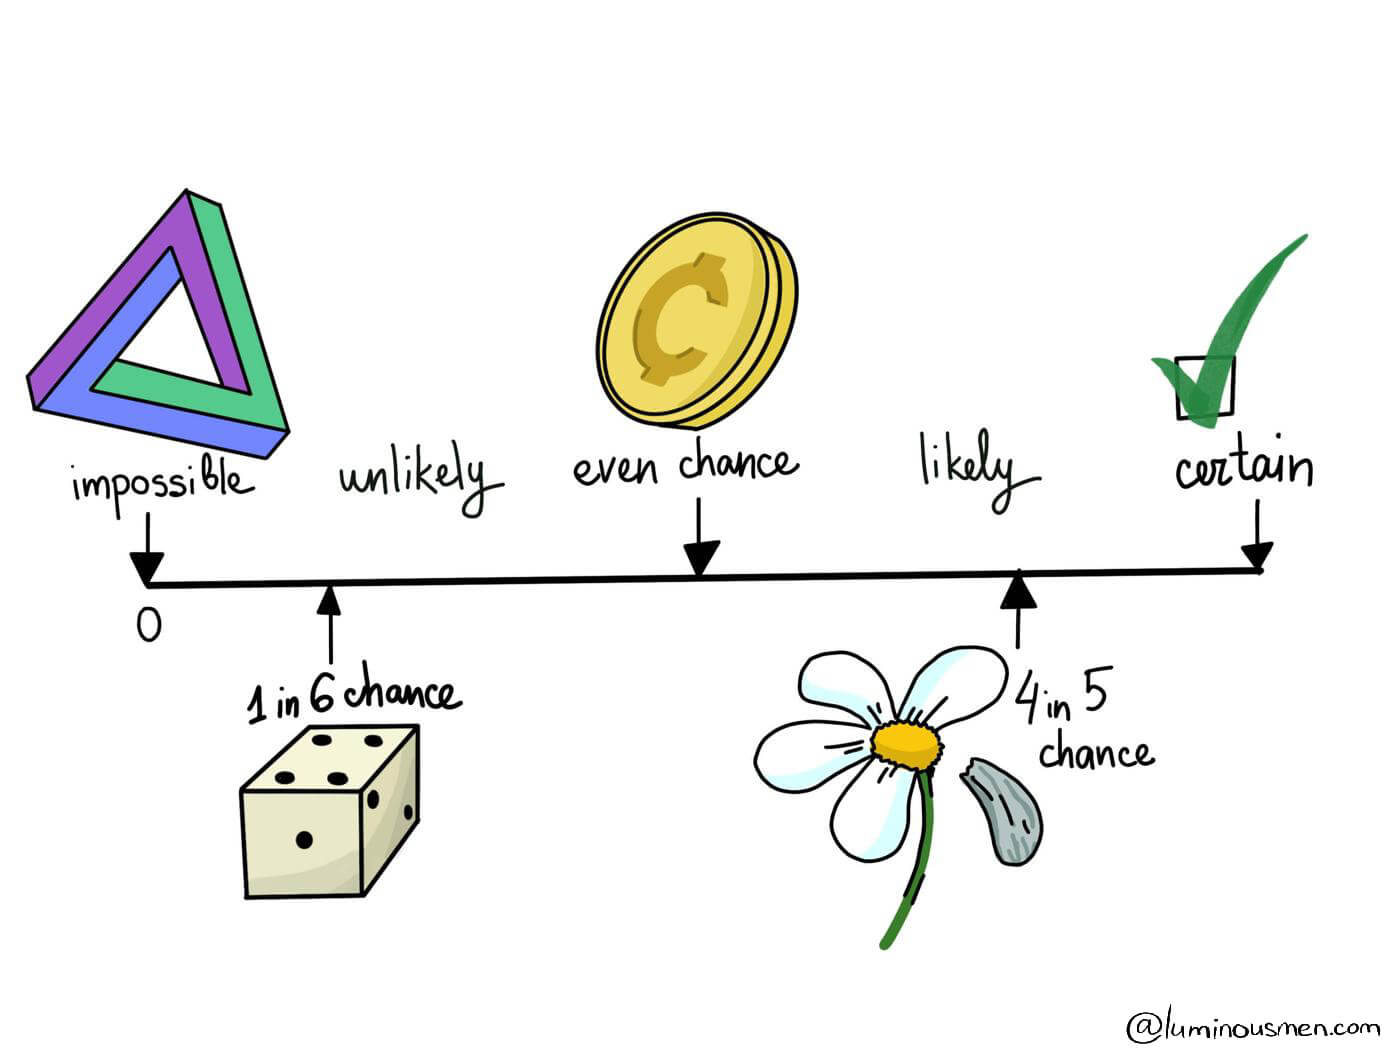 impossible
unlikely
even chance
likely
certain
0
1 in 6 chance
4 in 5
chance
@luminousmen.com